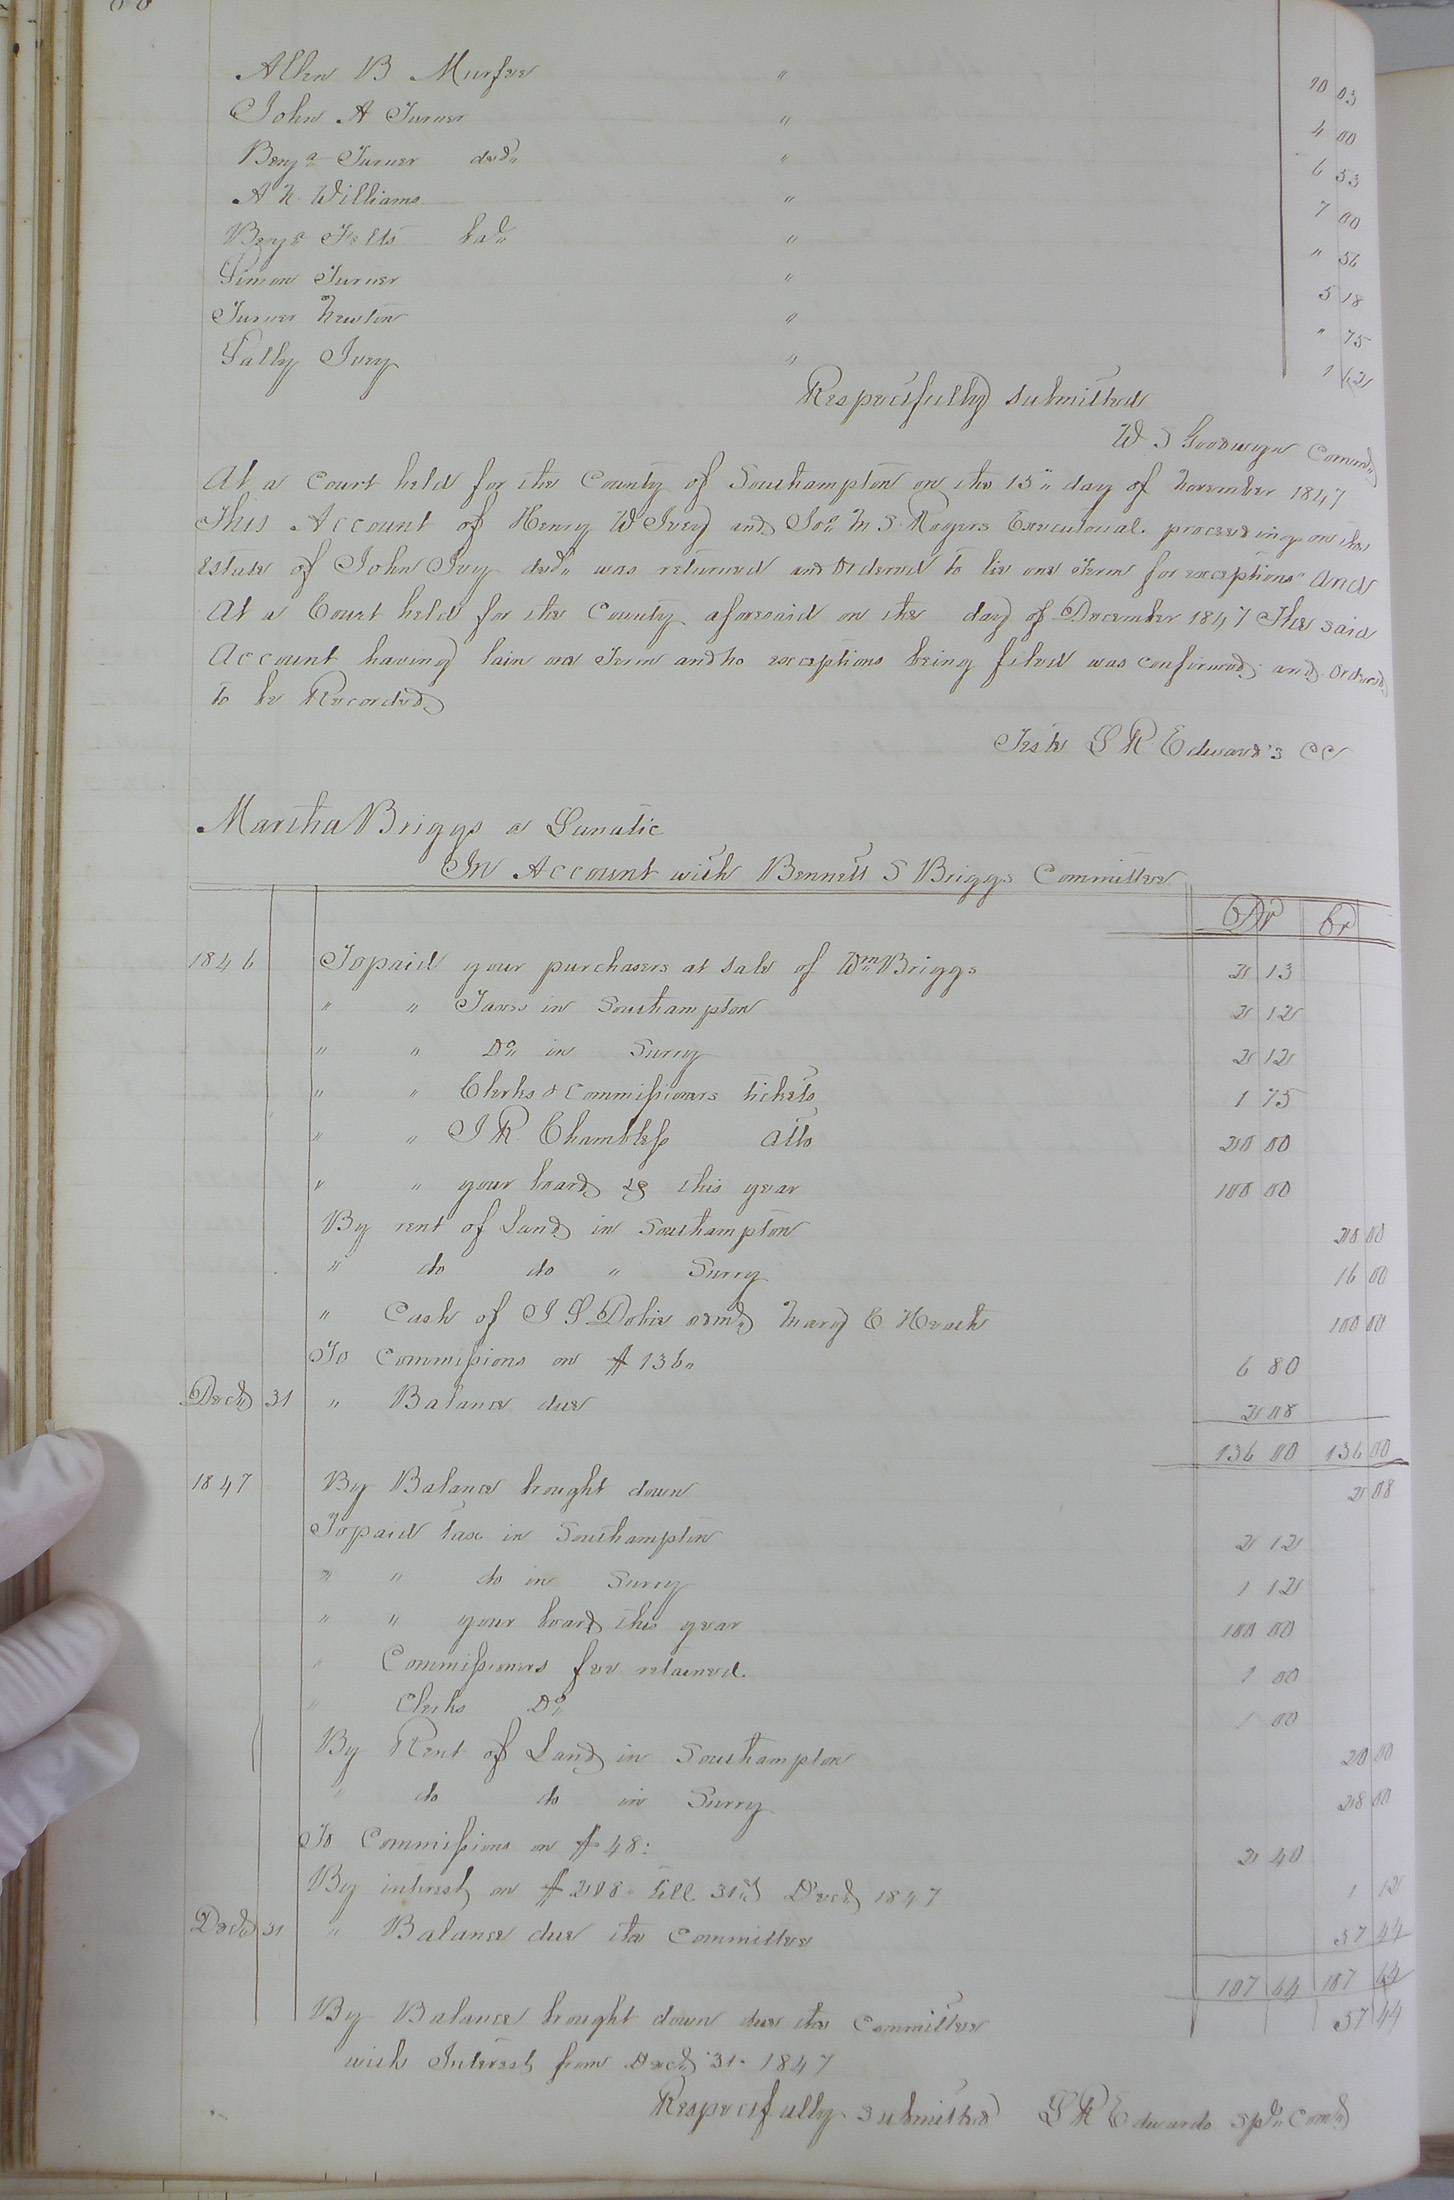 Allen B Murfee " 20 03
John A Turner " 4 00
Benja Turner decd " 6 53
A N Williams " 7 00
Benja Felts " " 56
Simon Turner " 5 18
Turner Newton " " 75
Sally Ivey " 1 62
Respectfully submitted
W S Goodwyn Commr
At a Court held for the County of Southampton on the 15" day of November 1847
This Account of Henry W Ivey and Jos M S Rogers Executorial proceedings on the
Estate of John Ivey decd was returned and Ordered to lie one Term for exceptions And
At a Court held for the County aforesaid on the day of December 1847 The said
Account having lain one Term and no exceptions being filed was confirmed and Ordered
to be Recorded
Teste L R Edwards CC
Martha Briggs a Lunatic
In Account with Bennett S Briggs Committee
Dr Cr
1846 To paid your purchases at Sale of Wm Briggs 2 13
" " Taxes in Southampton 2 12
" " Do in Surry 2 12
" " Clerks & Commissioners tickets 1 75
" " J R Chambless Atto 20 00
" " your board &c this year 100 00
By rent of Land in Southampton 20 00
" do do " Surry 16 00
" Cash of J S Dobie admr Mary E Heath 100 00
To Commissions on $136" 6 80
Decr 31 " Balance due 2 08
136 00 136 00
1847 By Balance brought down 2 08
To paid tax in Southampton 2 12
" " do in Surry 1 12
" " your board this year 100 00
" Commissioners fee retained. 1 00
" Clerks Do 1 00
By Rent of Land in Southampton 20 00
" do do in Surry 28 00
To Commissions on $48: 2 40
By interest on $208 till 31st Decr 1847 12
Decr 31 " Balance due the Committee 57 44
107 64 107 64
By Balance brought down due the Committee 57 44
with Interest from Decr 31. 1847
Respectfully submitted L R Edwards Spl Comr